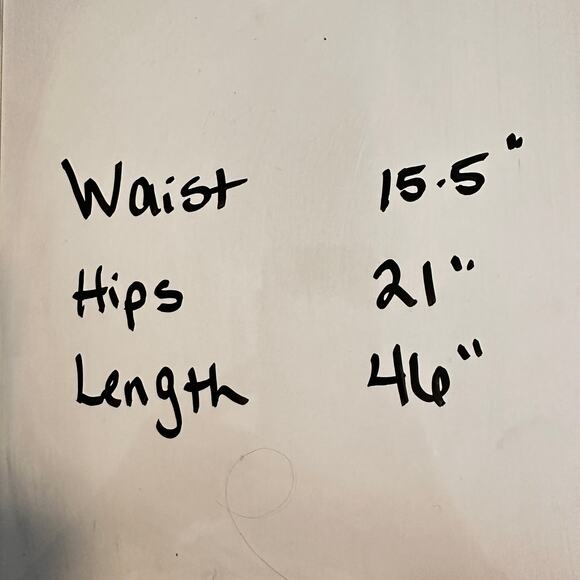 Waist 15.5"
Hips 21"
Length 46"